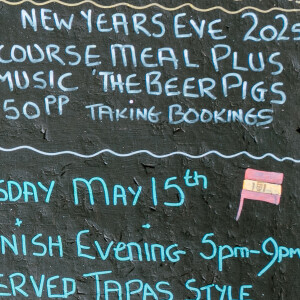 NEW YEARS EVE 2025
COURSE MEAL PLUS
MUSIC 'THE BEER PIGS
50PP TAKING BOOKINGS
SDAY MAY 15th
NISH EVENING 5pm-9pm
ERVED TAPAS STYLE